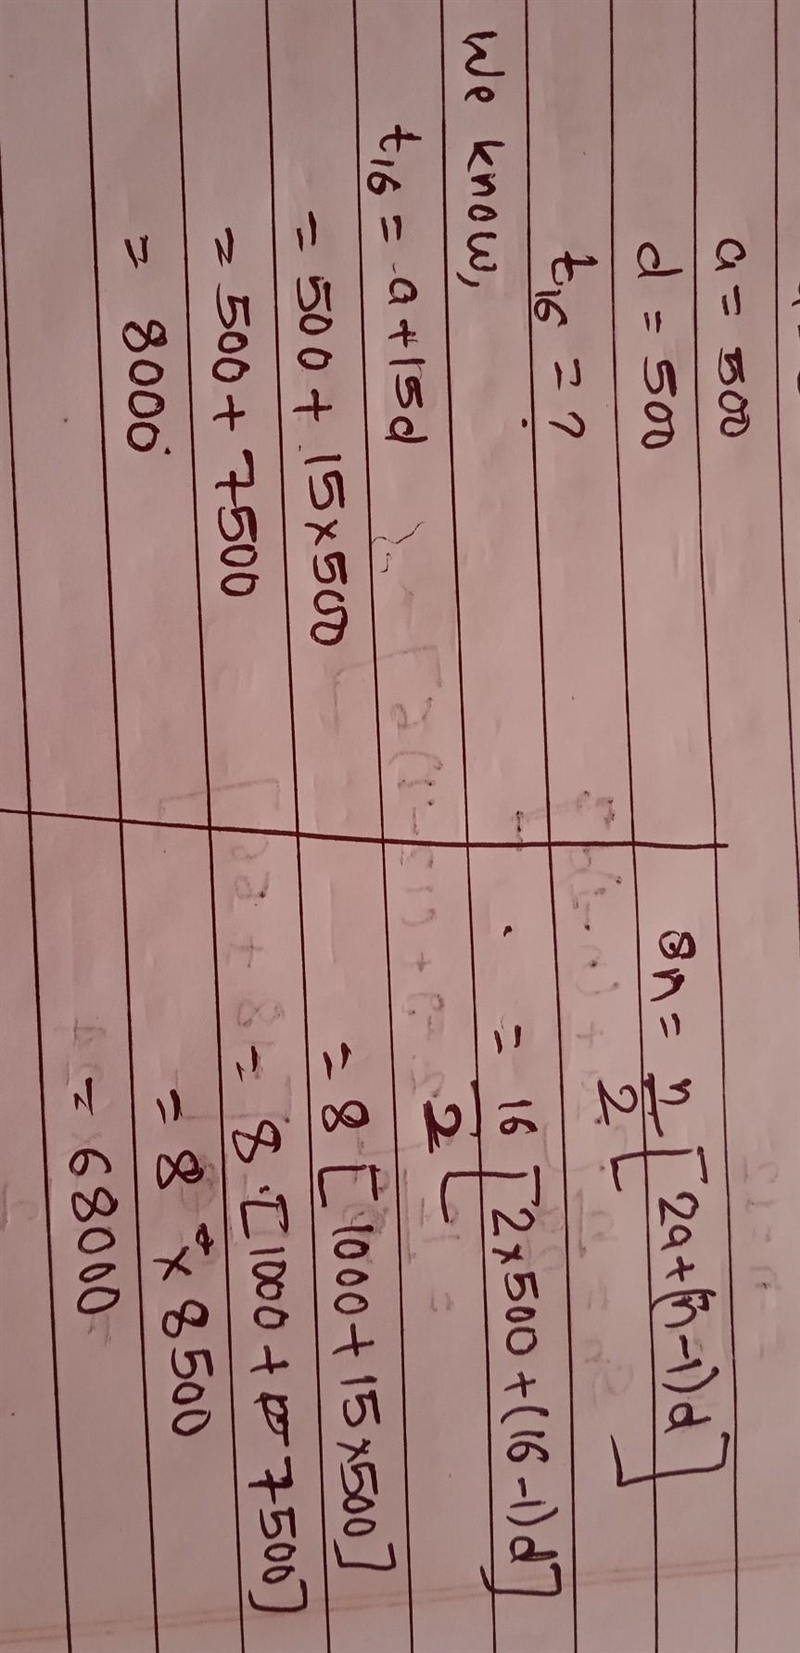 a = 500
d = 500
t₁₆ = ?
We know,
t₁₆ = a + 15d
= 500 + 15 × 500
= 500 + 7500
= 8000
Sn = n/2 [2a + (n-1)d]
= 16/2 [2×500 + (16-1)d]
= 8 [1000 + 15 × 500]
= 8 [1000 + 7500]
= 8 × 8500
= 68000